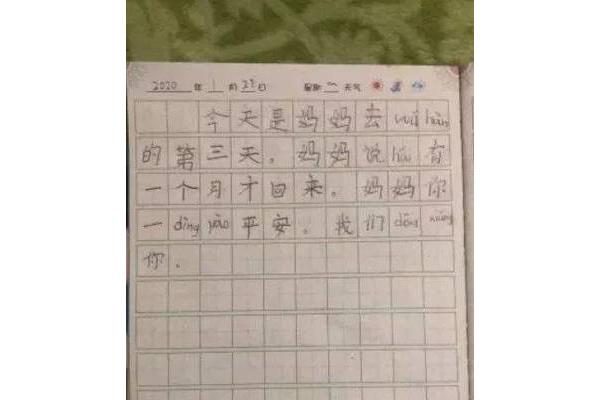 2020 年 1 月 29 日 星期 天气
今天是妈妈去wǔ hàn
的第三天。妈妈说hái有
一个月才回来。妈妈你
一dìng yào平安。我们děng
你。